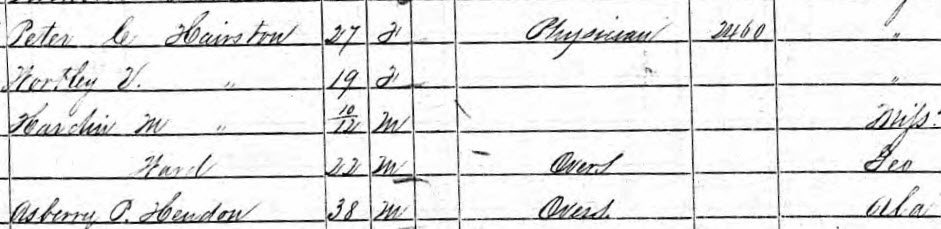 Peter C Hairston 27 F Physician 2460 "
Wortley V. " 19 F "
Hardin M " 10/12 M Miss.
Ward 22 M Overs. Geo
Asberry P. Hendon 38 M Overs. Ala